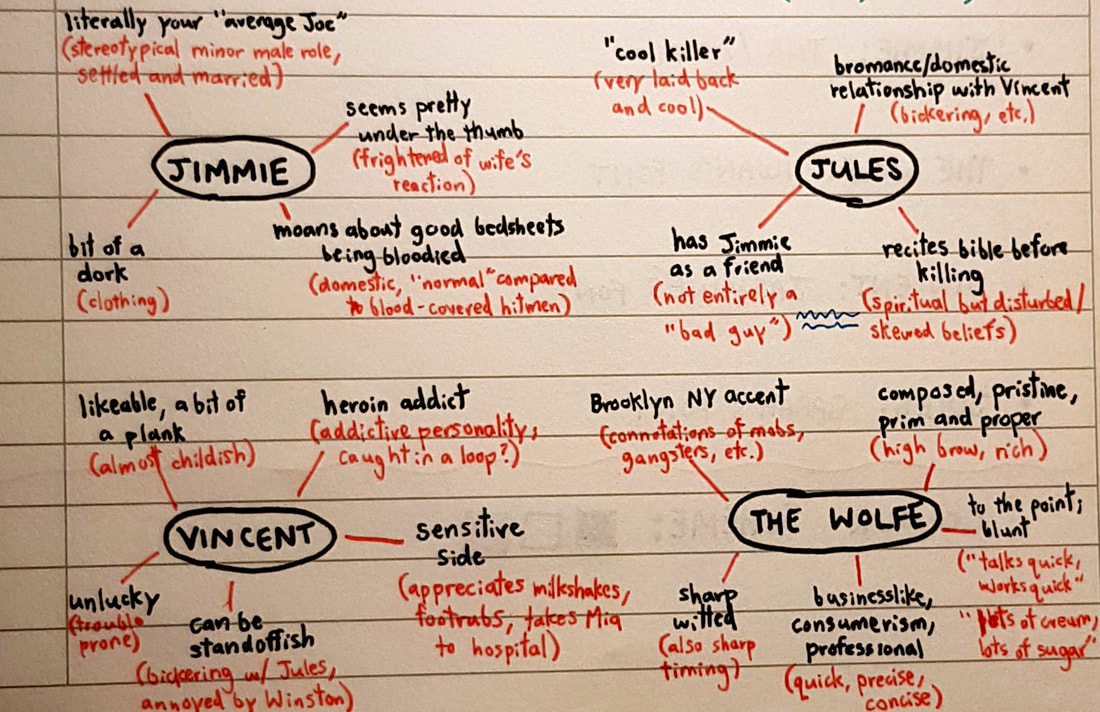 literally your "average Joe"
(stereotypical minor male role,
settled and married)
seems pretty
under the thumb
(frightened of wife's
reaction)
JIMMIE
bit of a
dork
(clothing)
moans about good bedsheets
being bloodied
(domestic, "normal" compared
to blood-covered hitmen)
"cool killer"
(very laid back
and cool)
bromance/domestic
relationship with Vincent
(bickering, etc.)
JULES
has Jimmie
as a friend
(not entirely a
"bad guy")
recites bible before
killing
(spiritual but disturbed/
skewed beliefs)
likeable, a bit of
a plank
(almost childish)
heroin addict
(addictive personality,
caught in a loop?)
VINCENT
sensitive
side
(appreciates milkshakes,
footrubs, takes Mia
to hospital)
unlucky
(trouble
prone)
can be
standoffish
(bickering w/ Jules,
annoyed by Winston)
Brooklyn NY accent
(connotations of mobs,
gangsters, etc.)
composed, pristine,
prim and proper
(high brow, rich)
THE WOLFE
to the point;
blunt
("talks quick,
works quick"
"lots of cream,
lots of sugar"
sharp
witted
(also sharp
timing)
businesslike,
consumerism,
professional
(quick, precise,
concise)